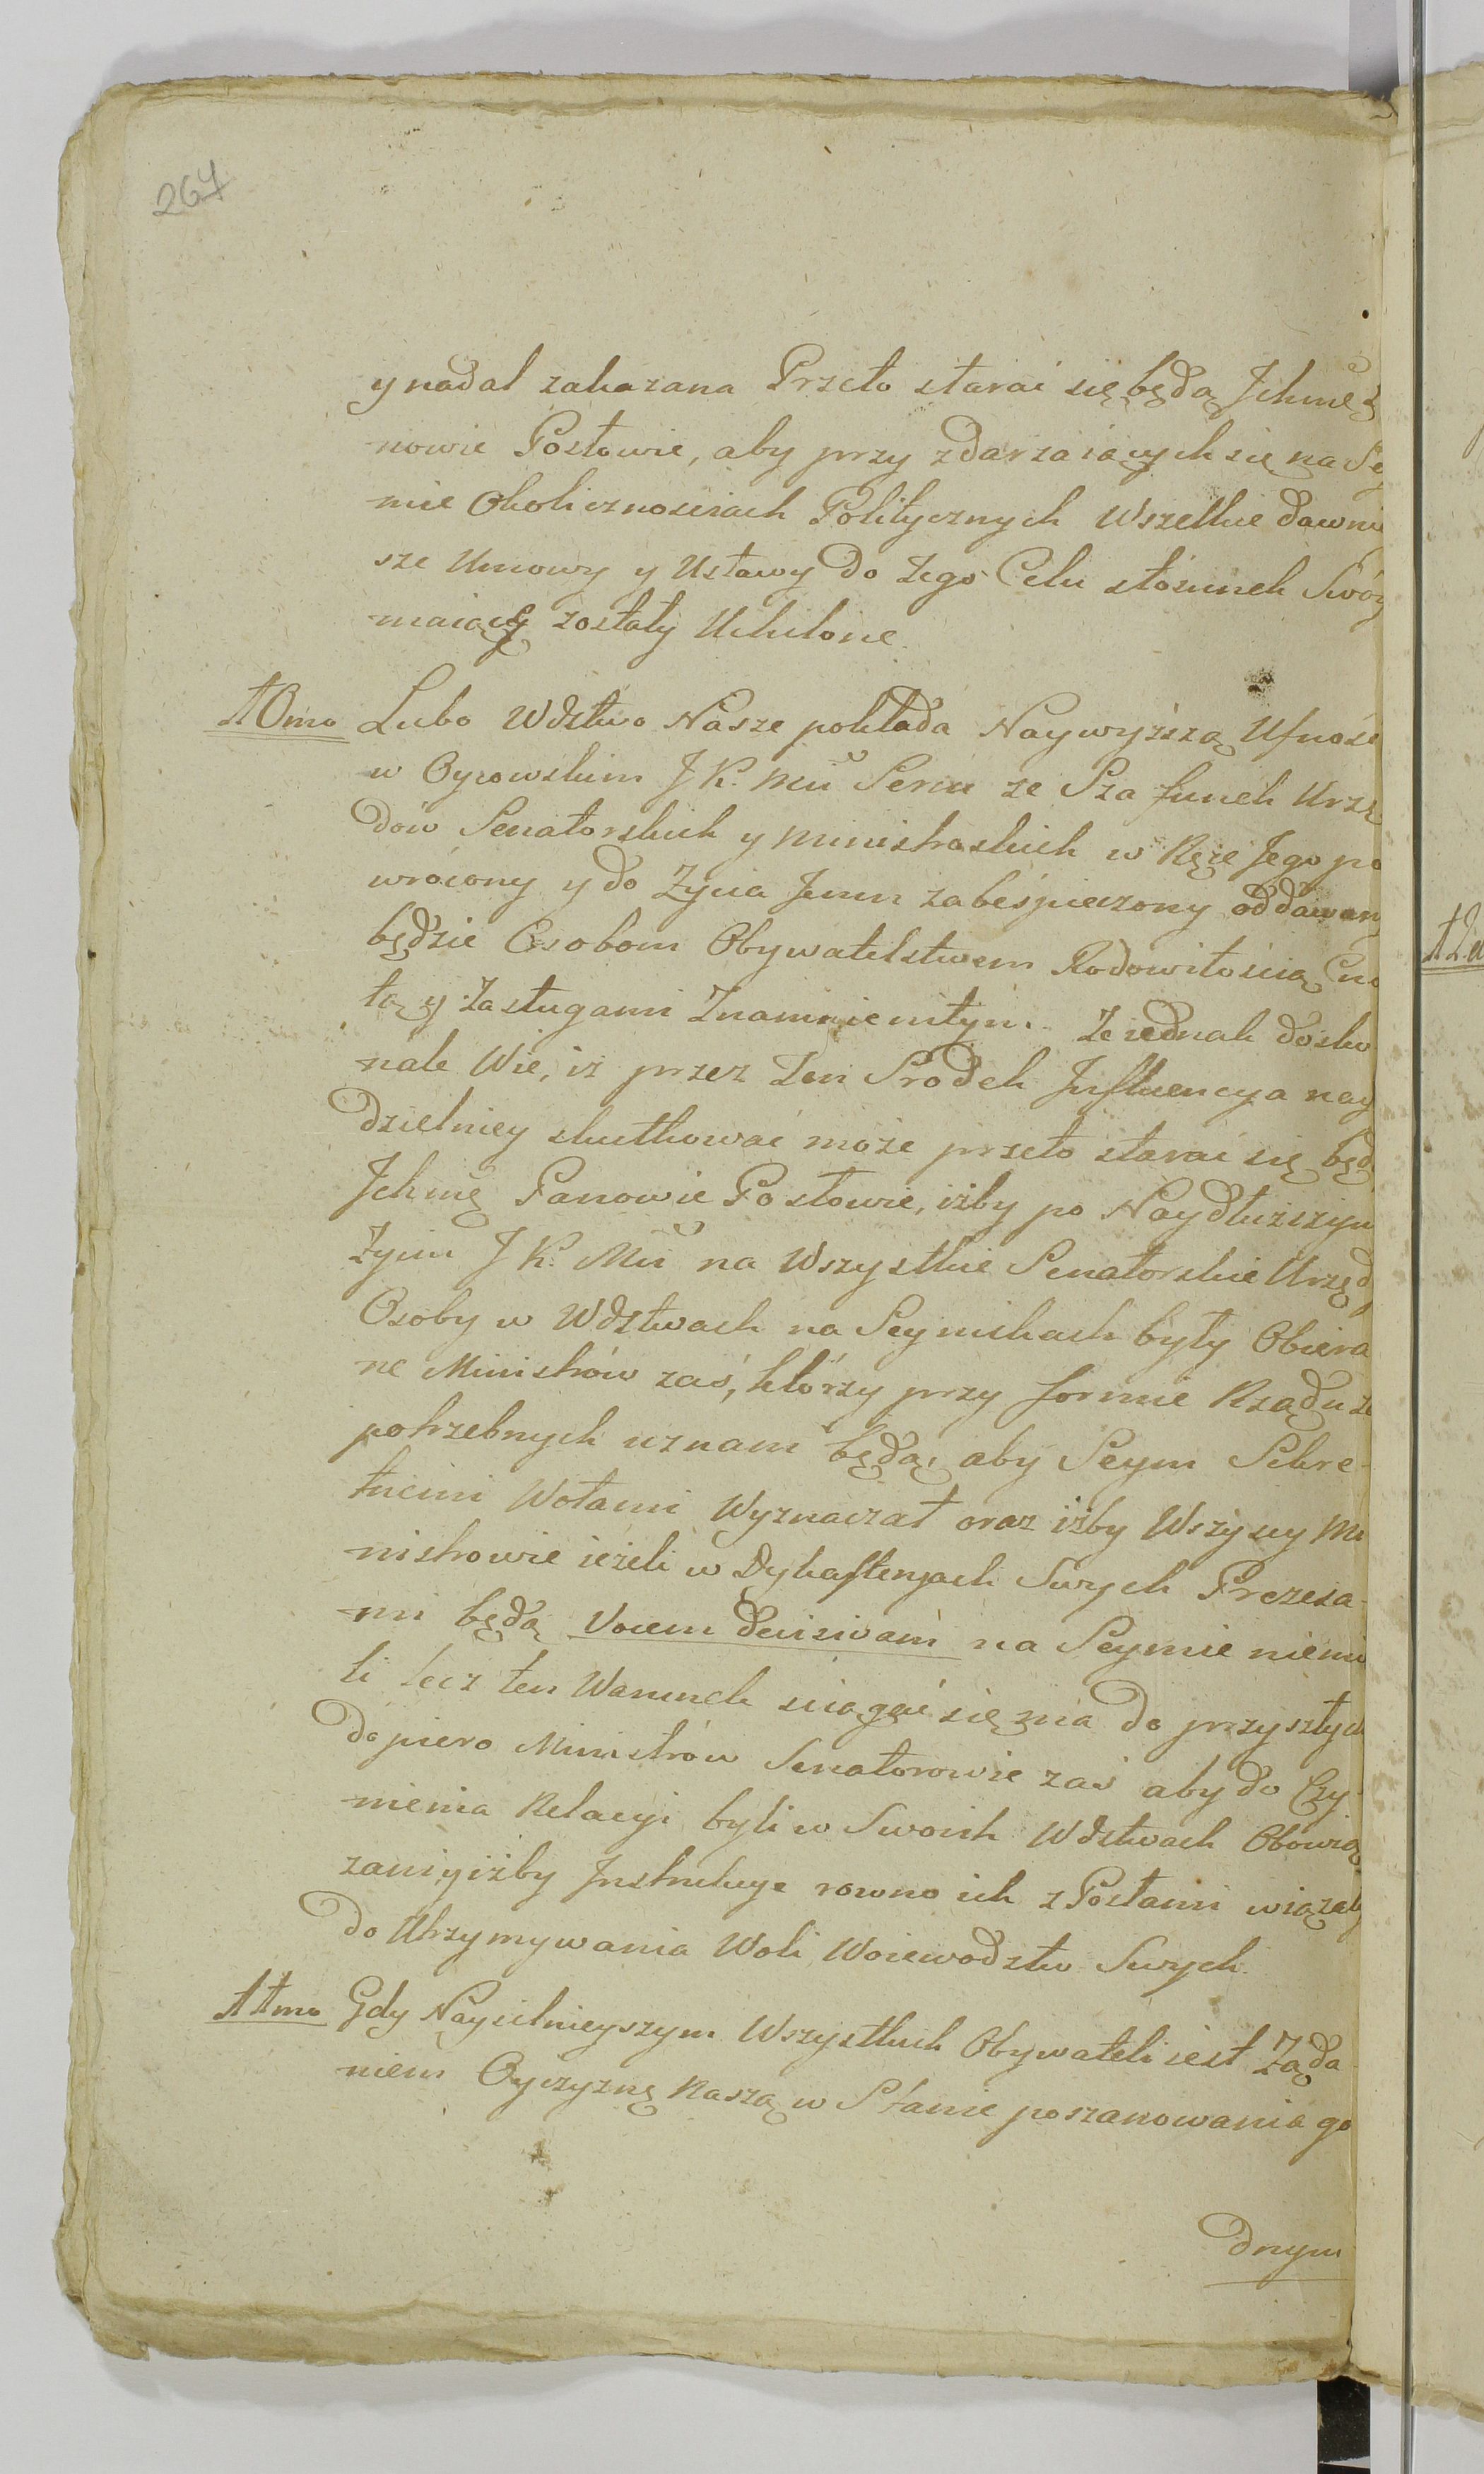 267
y nadal zakazana Przeto starać się będą Jchmć
nowie Posłowie, aby przy zdarzaiących się na Sey
mie Okolicznościach Politycznych Wszelkie dawniey
sze Umowy y Ustawy do Tego Celu stósunek Swóy
maiące zostały Uchilone.
10mo Lubo Wdztwo Nasze pokłada Naywyższą Ufność
w Oycowskim J K. Mci Sercu ze Szafunek Urzę
dów Senatorskich y ministroskich w Ręce Jego po
wrócony y do Zycia Jemu zabeśpieczony oddawany
będzie Osobom Obywatelstwem Rodowitością Cno
tą y Zasługami Znamienitym. Ze iednak dosko
nale Wie, iż przez Ten Srodek Jnfluencya nay
dzielniey skutkować może przeto starać się będą
Jchmć Panowie Posłowie, iżby po Naydłuższym
Zyciu J K. Mci na Wszystkie Senatorskie Urzędy
Osoby w Wdztwach na Seymikach były Obiera
ne Ministrów zaś, którzy przy formie Rządu za
potrzebnych uznani będą, aby Seym Sekre-
tnemi Wotami Wyznaczał oraz iżby Wszyscy Mi
nistrowie ieżeli w Dykasteryach Swych Prezesa-
mi będą Vocem decisivam na Seymie niemie
li lecz ten Warunek sciągać się ma do przyszłych
dopiero Ministrów Senatorowie zaś aby do Czy-
nienia Relacyi byli w Swoich Wdztwach Obowią
zani, y iżby Jnstrukcye rowno ich z Posłami wiązały
do Utrzymywania Woli Woiewodztw Swych.
11mo Gdy Naysilnieyszym Wszystkich Obywateli iest Ząda
niem Oyczyznę Naszą w Stanie poszanowania go
dnym